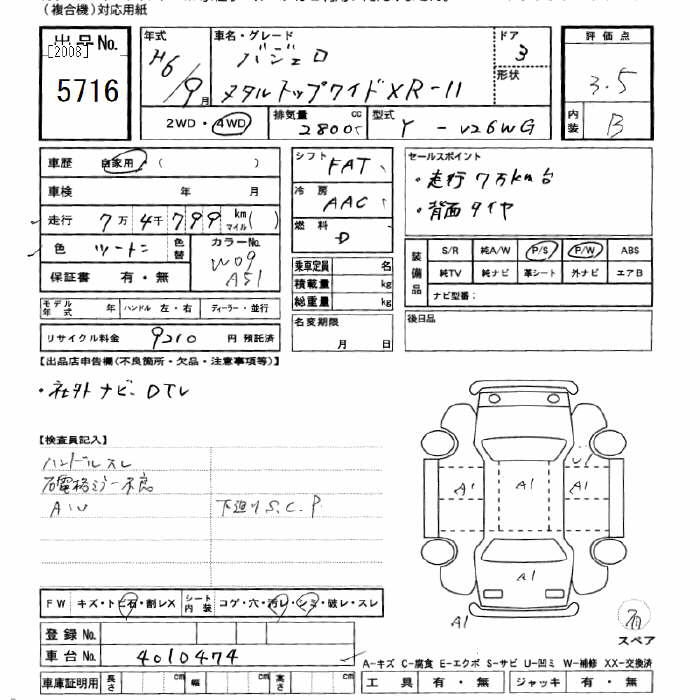 (複合機)対応用紙
出品No.
[2008]
5716
年式
H6/9月
車名・グレード
パジェロ
メタルトップワイドXR-II
ドア
3
形状
評価点
3.5
内装
B
2WD・4WD
排気量
2800cc
型式
Y-V26WG
車歴 自家用( )
車検 年 月
走行 7万4千799 km マイル( )
色 ツートン
色替
カラーNo.
W09
A51
保証書 有・無
モデル年式 年
ハンドル 左・右
ディーラー・並行
リサイクル料金 9210 円 預託済
シフト FAT
冷房 AAC
燃料 D
乗車定員 名
積載量 kg
総重量 kg
名変期限
月 日
セールスポイント
・走行7万km台
・背面タイヤ
装備品
S/R 純A/W P/S P/W ABS
純TV 純ナビ 革シート 外ナビ エアB
ナビ型番:
後日品
【出品店申告欄(不良箇所・欠品・注意事項等)】
・社外ナビ DTV
【検査員記入】
ハンドルスレ
右電格ミラー不良
AW
下廻りS.C.P
A1
A1
A1
A1
A1
FW キズ・トビ石・割レX
シート内装 コゲ・穴・汚レ・シミ・破レ・スレ
登録No.
車台No. 4010474
スペア
A-キズ C-腐食 E-エクボ S-サビ U-凹ミ W-補修 XX-交換済
車庫証明用 長さ cm 幅 cm 高さ cm
工具 有・無
ジャッキ 有・無